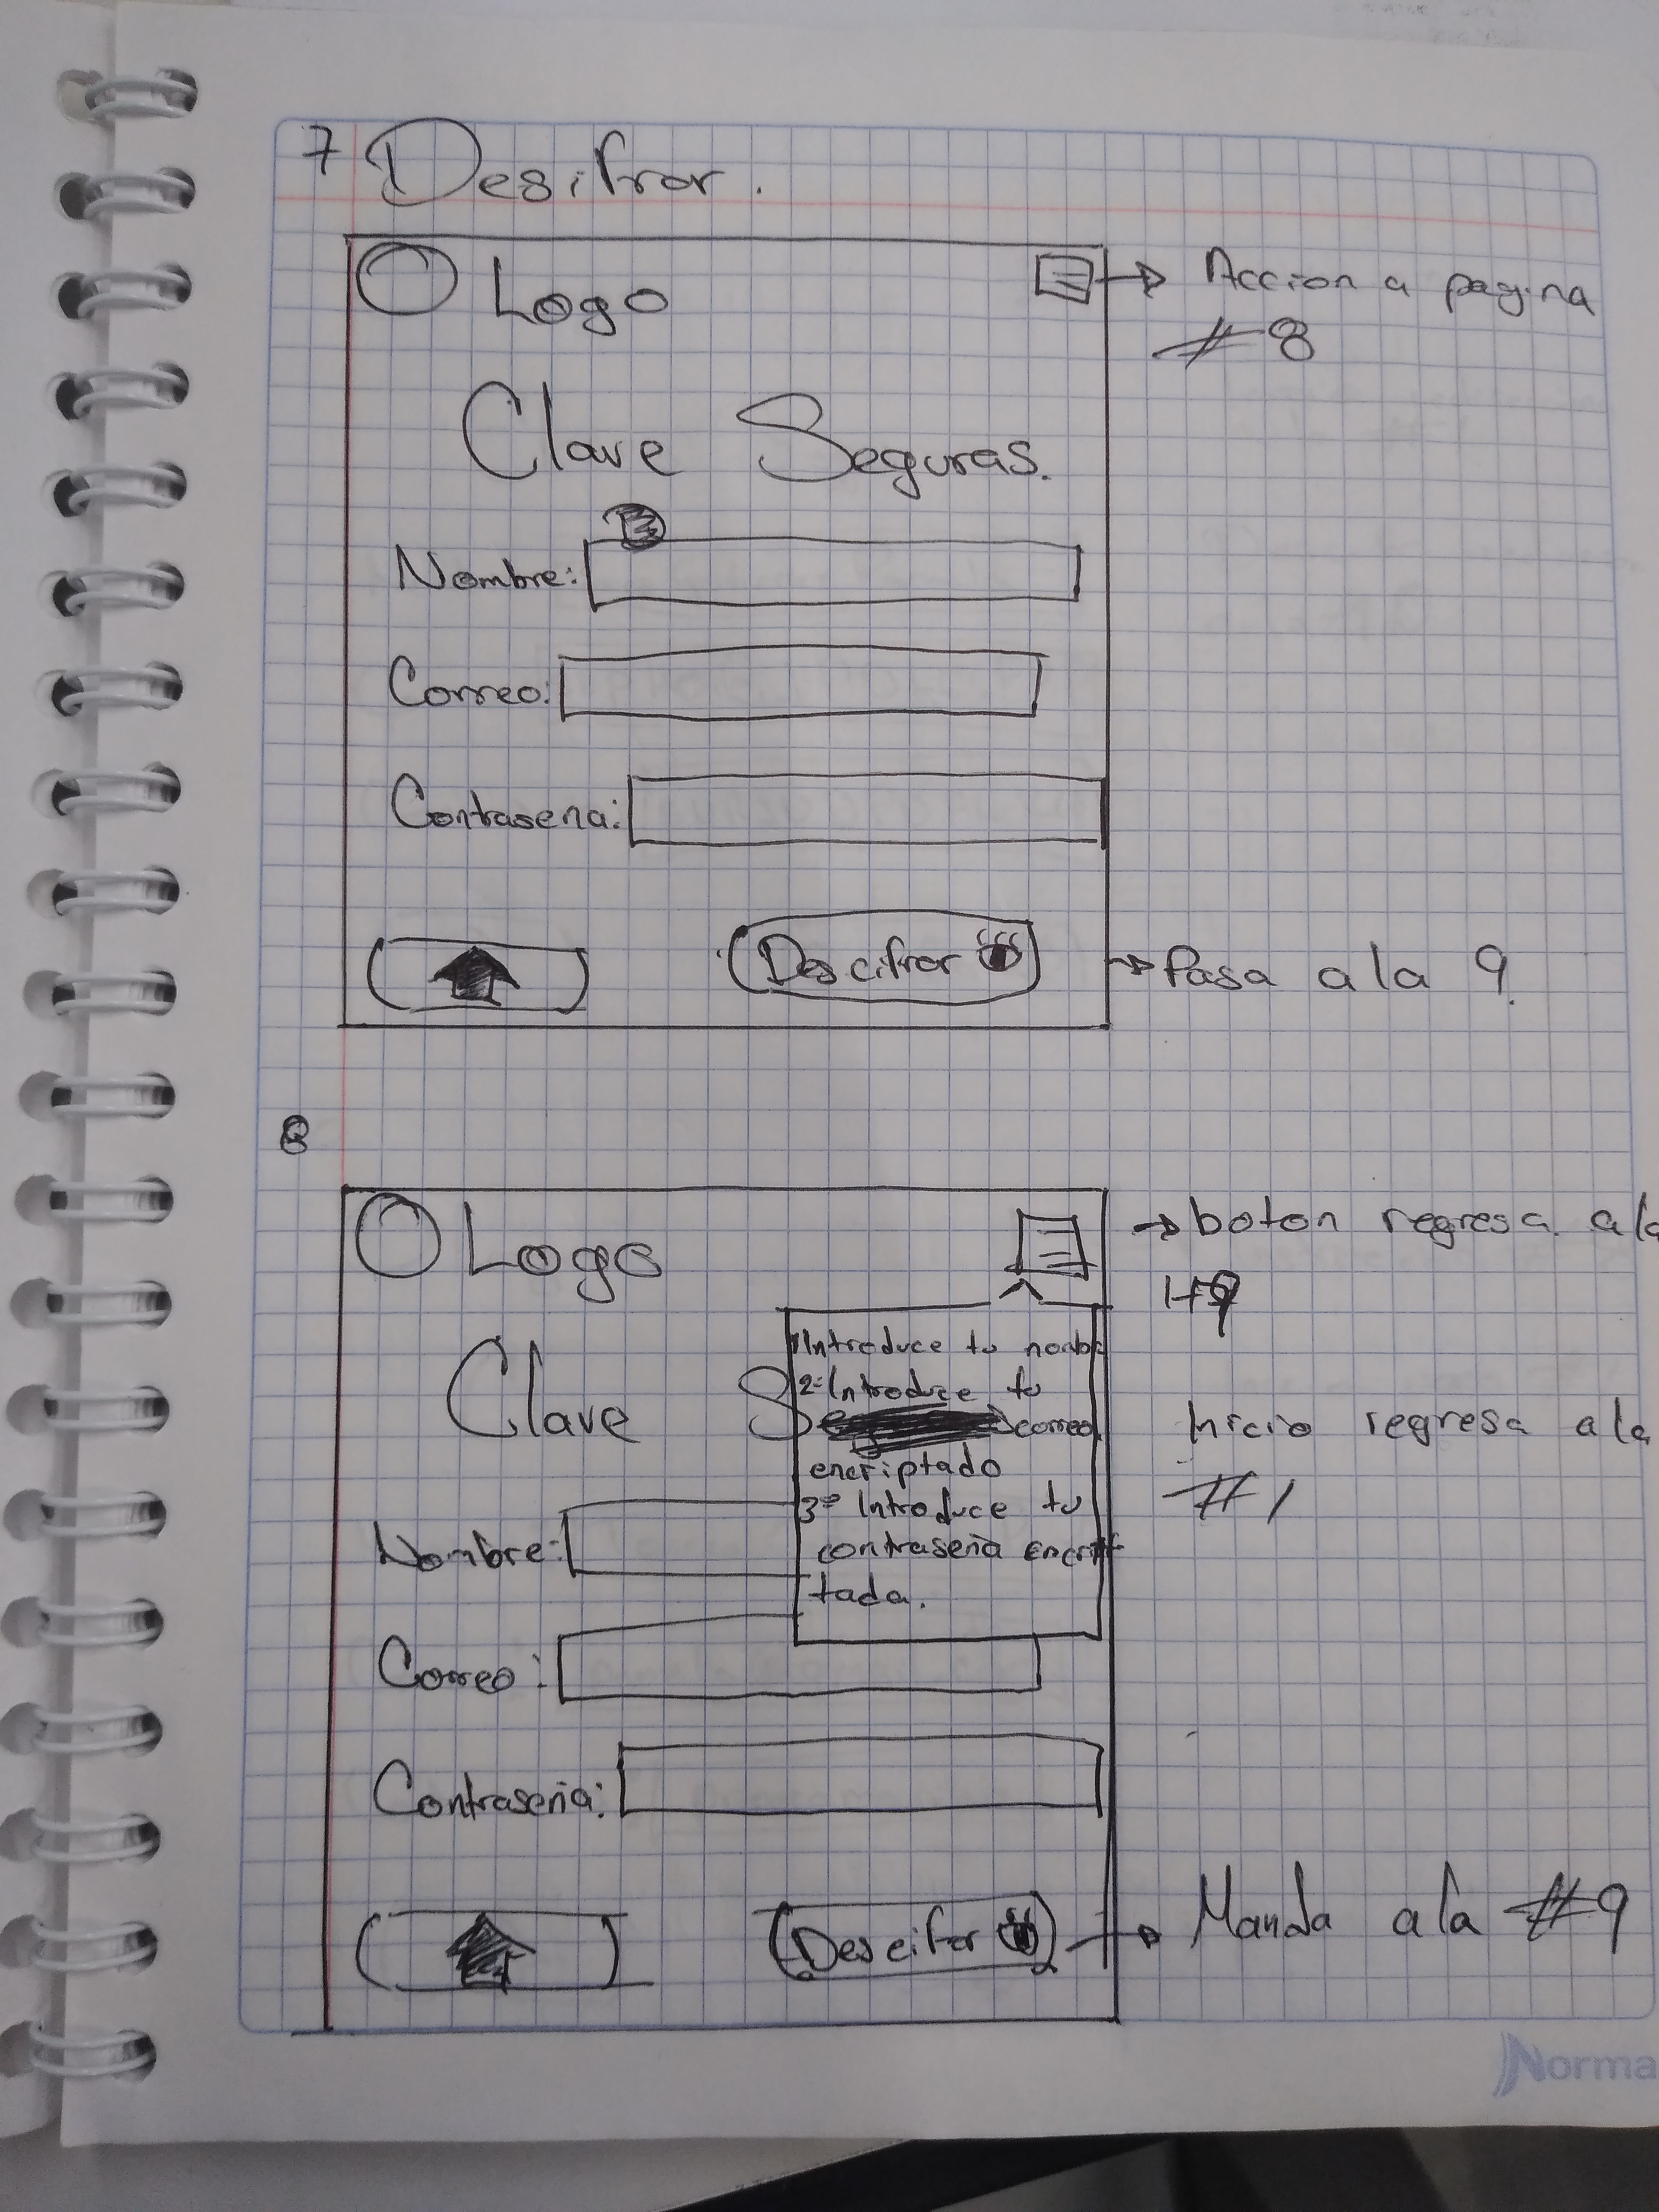 7 Desifrar.
Logo
→ Accion a pagina
#8
Clave Seguras.
Nombre:
Correo:
Contasena:
Descifrar
→ Pasa a la 9.
8
Logo
→ boton regresa a la
Clave Se
1 Introduce tu
2- Introduce tu
correo
encriptado
3º Introduce tu
contraseña encrip
tada.
Inicio regresa a la
#1
Nombre:
Correo:
Contraseña:
Descifar
→ Manda a la #9
Norma